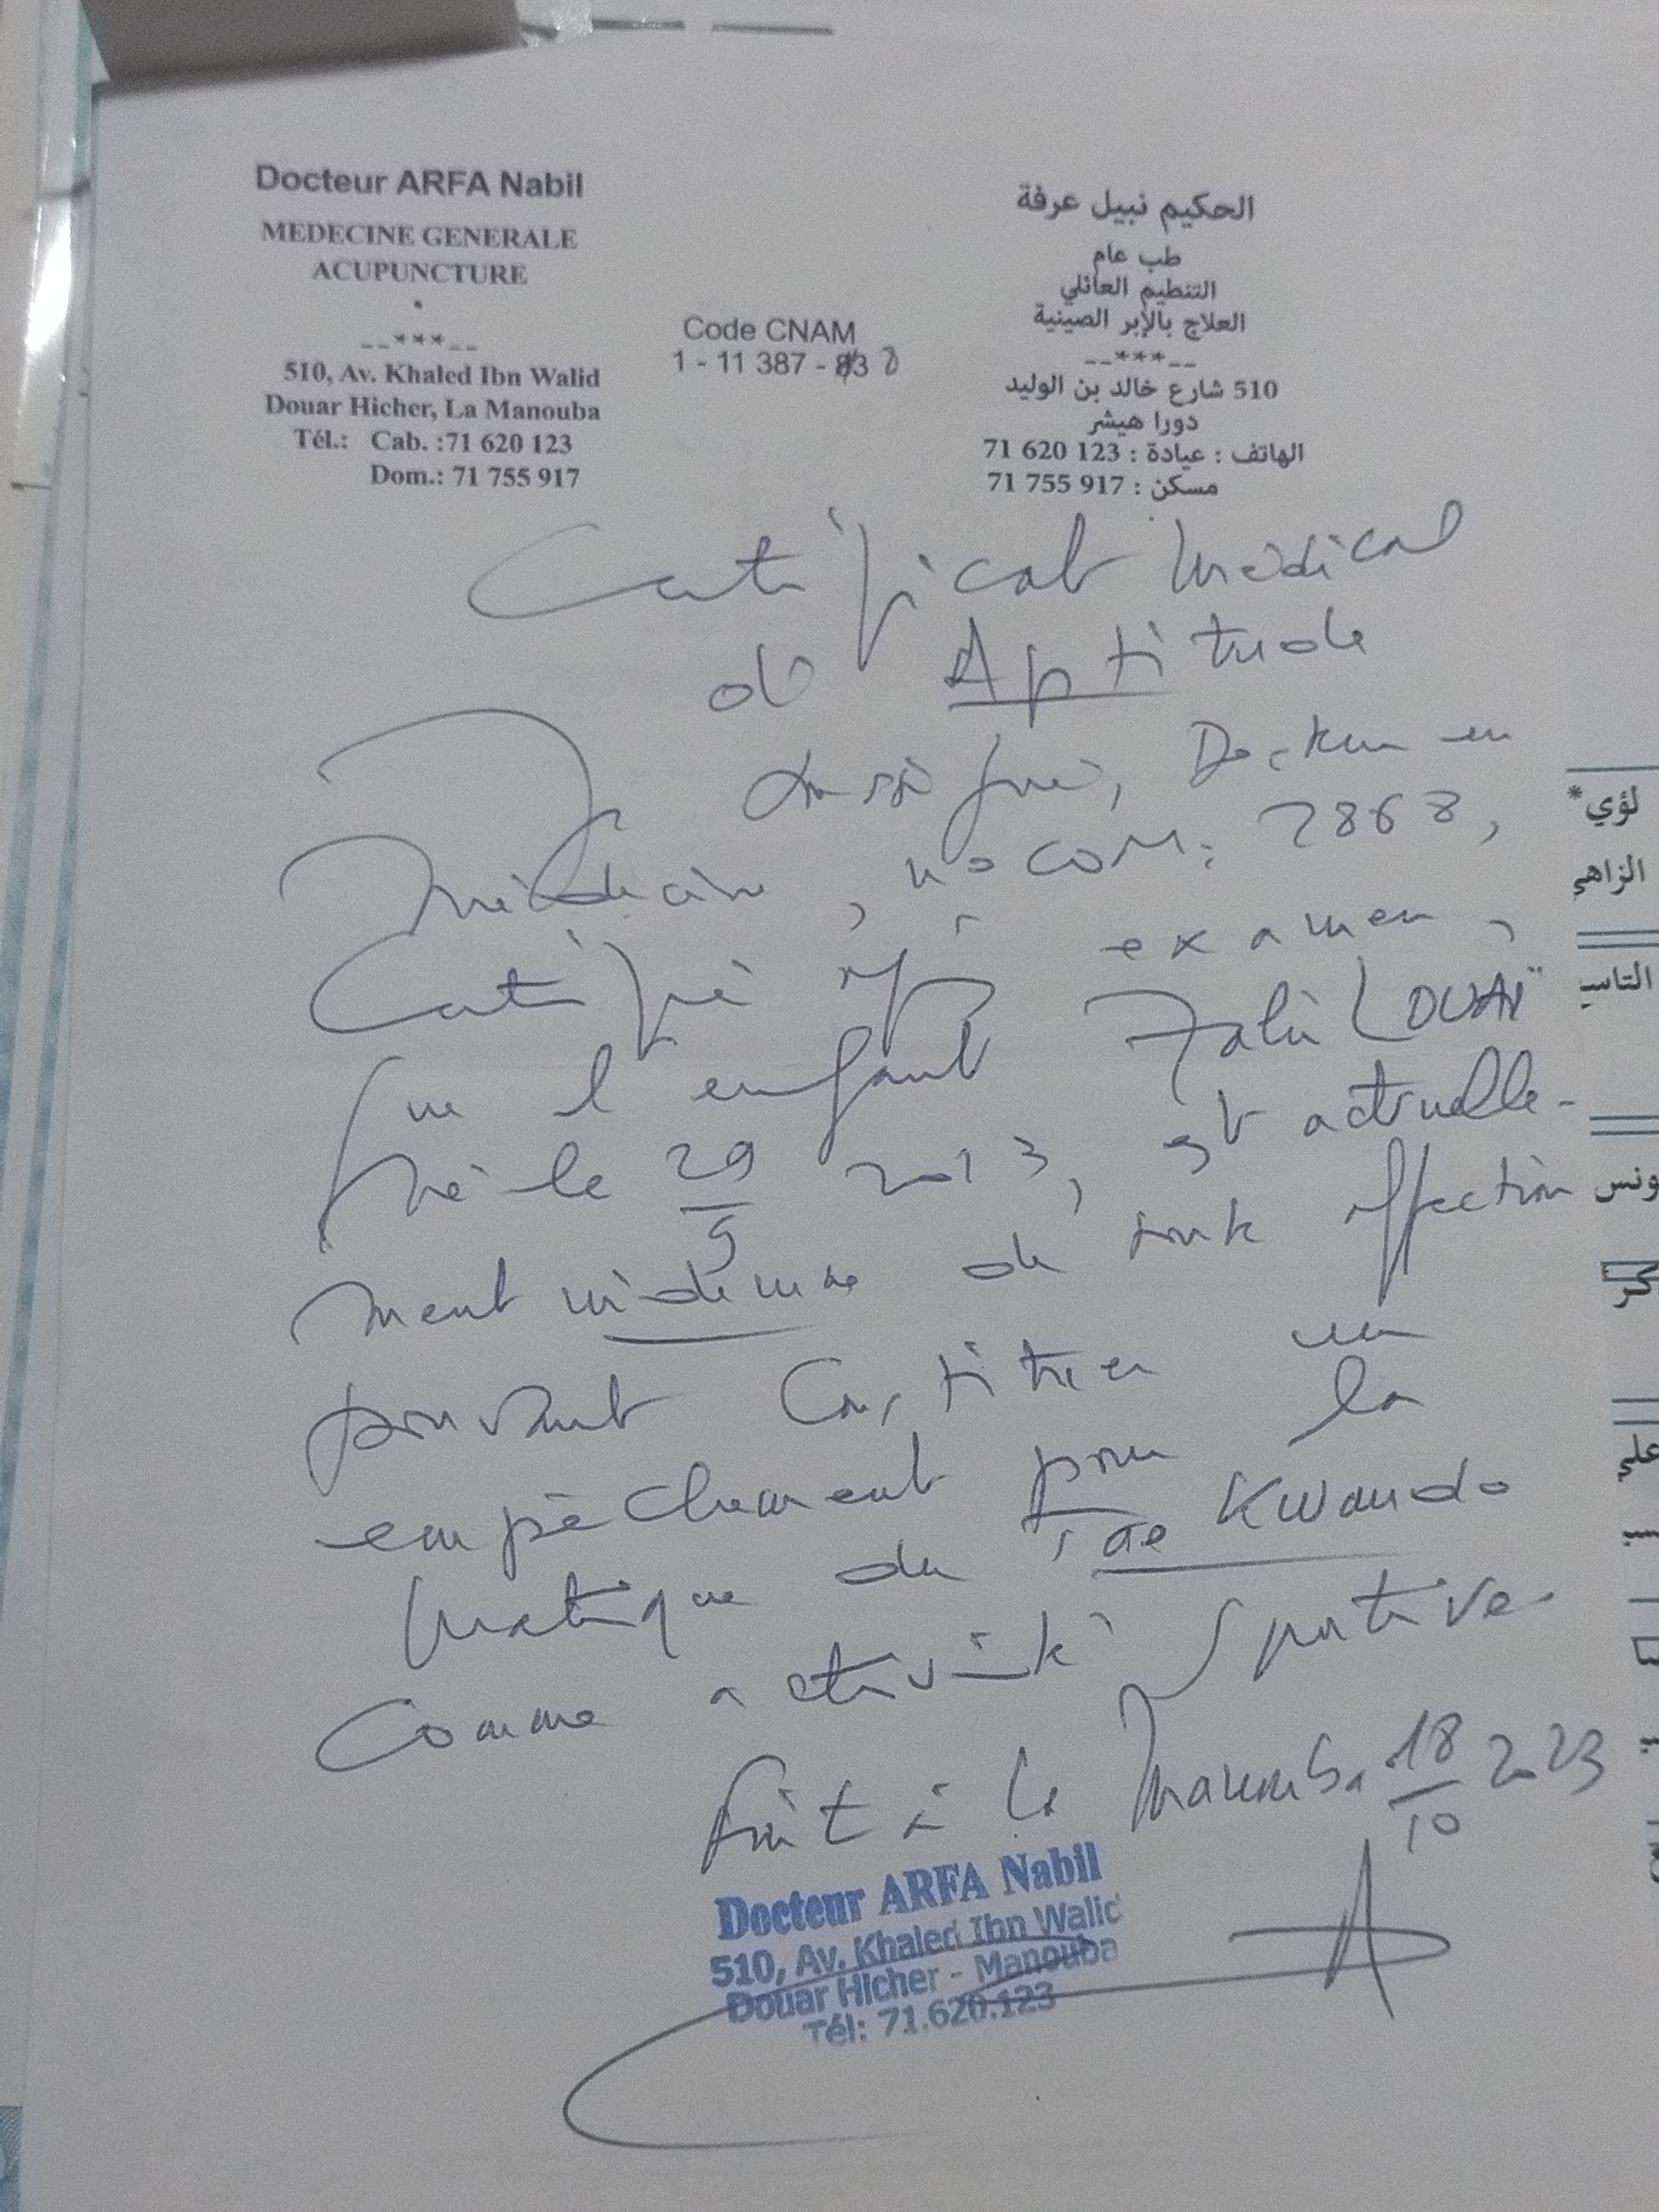 Docteur ARFA Nabil
MEDECINE GENERALE
ACUPUNCTURE
*
--***--
510, Av. Khaled Ibn Walid
Douar Hicher, La Manouba
Tél.: Cab. :71 620 123
Dom.: 71 755 917
Code CNAM
1 - 11 387 -
الحكيم نبيل عرفة
طب عام
التنظيم العائلي
العلاج بالإبر الصينية
--***--
510 شارع خالد بن الوليد
دورا هيشر
الهاتف : عيادة : 123 620 71
مسكن : 917 755 71
Certificat Médical
de Aptitude
Je soussigné, Docteur en
Médecine, n° COM: 2868,
Certifie après examen,
que l'enfant LOUAÏ
né le 29/5 2013, est actuelle-
ment indemne de toute affection
pouvant constituer un
empêchement pour la
pratique du Tae Kwando
comme activité sportive
Fait à la Manouba 18/10 2023
Docteur ARFA Nabil
510, Av. Khaled Ibn Walid
Douar Hicher - Manouba
Tél: 71.620.123
لؤي*
الزاهي
علي